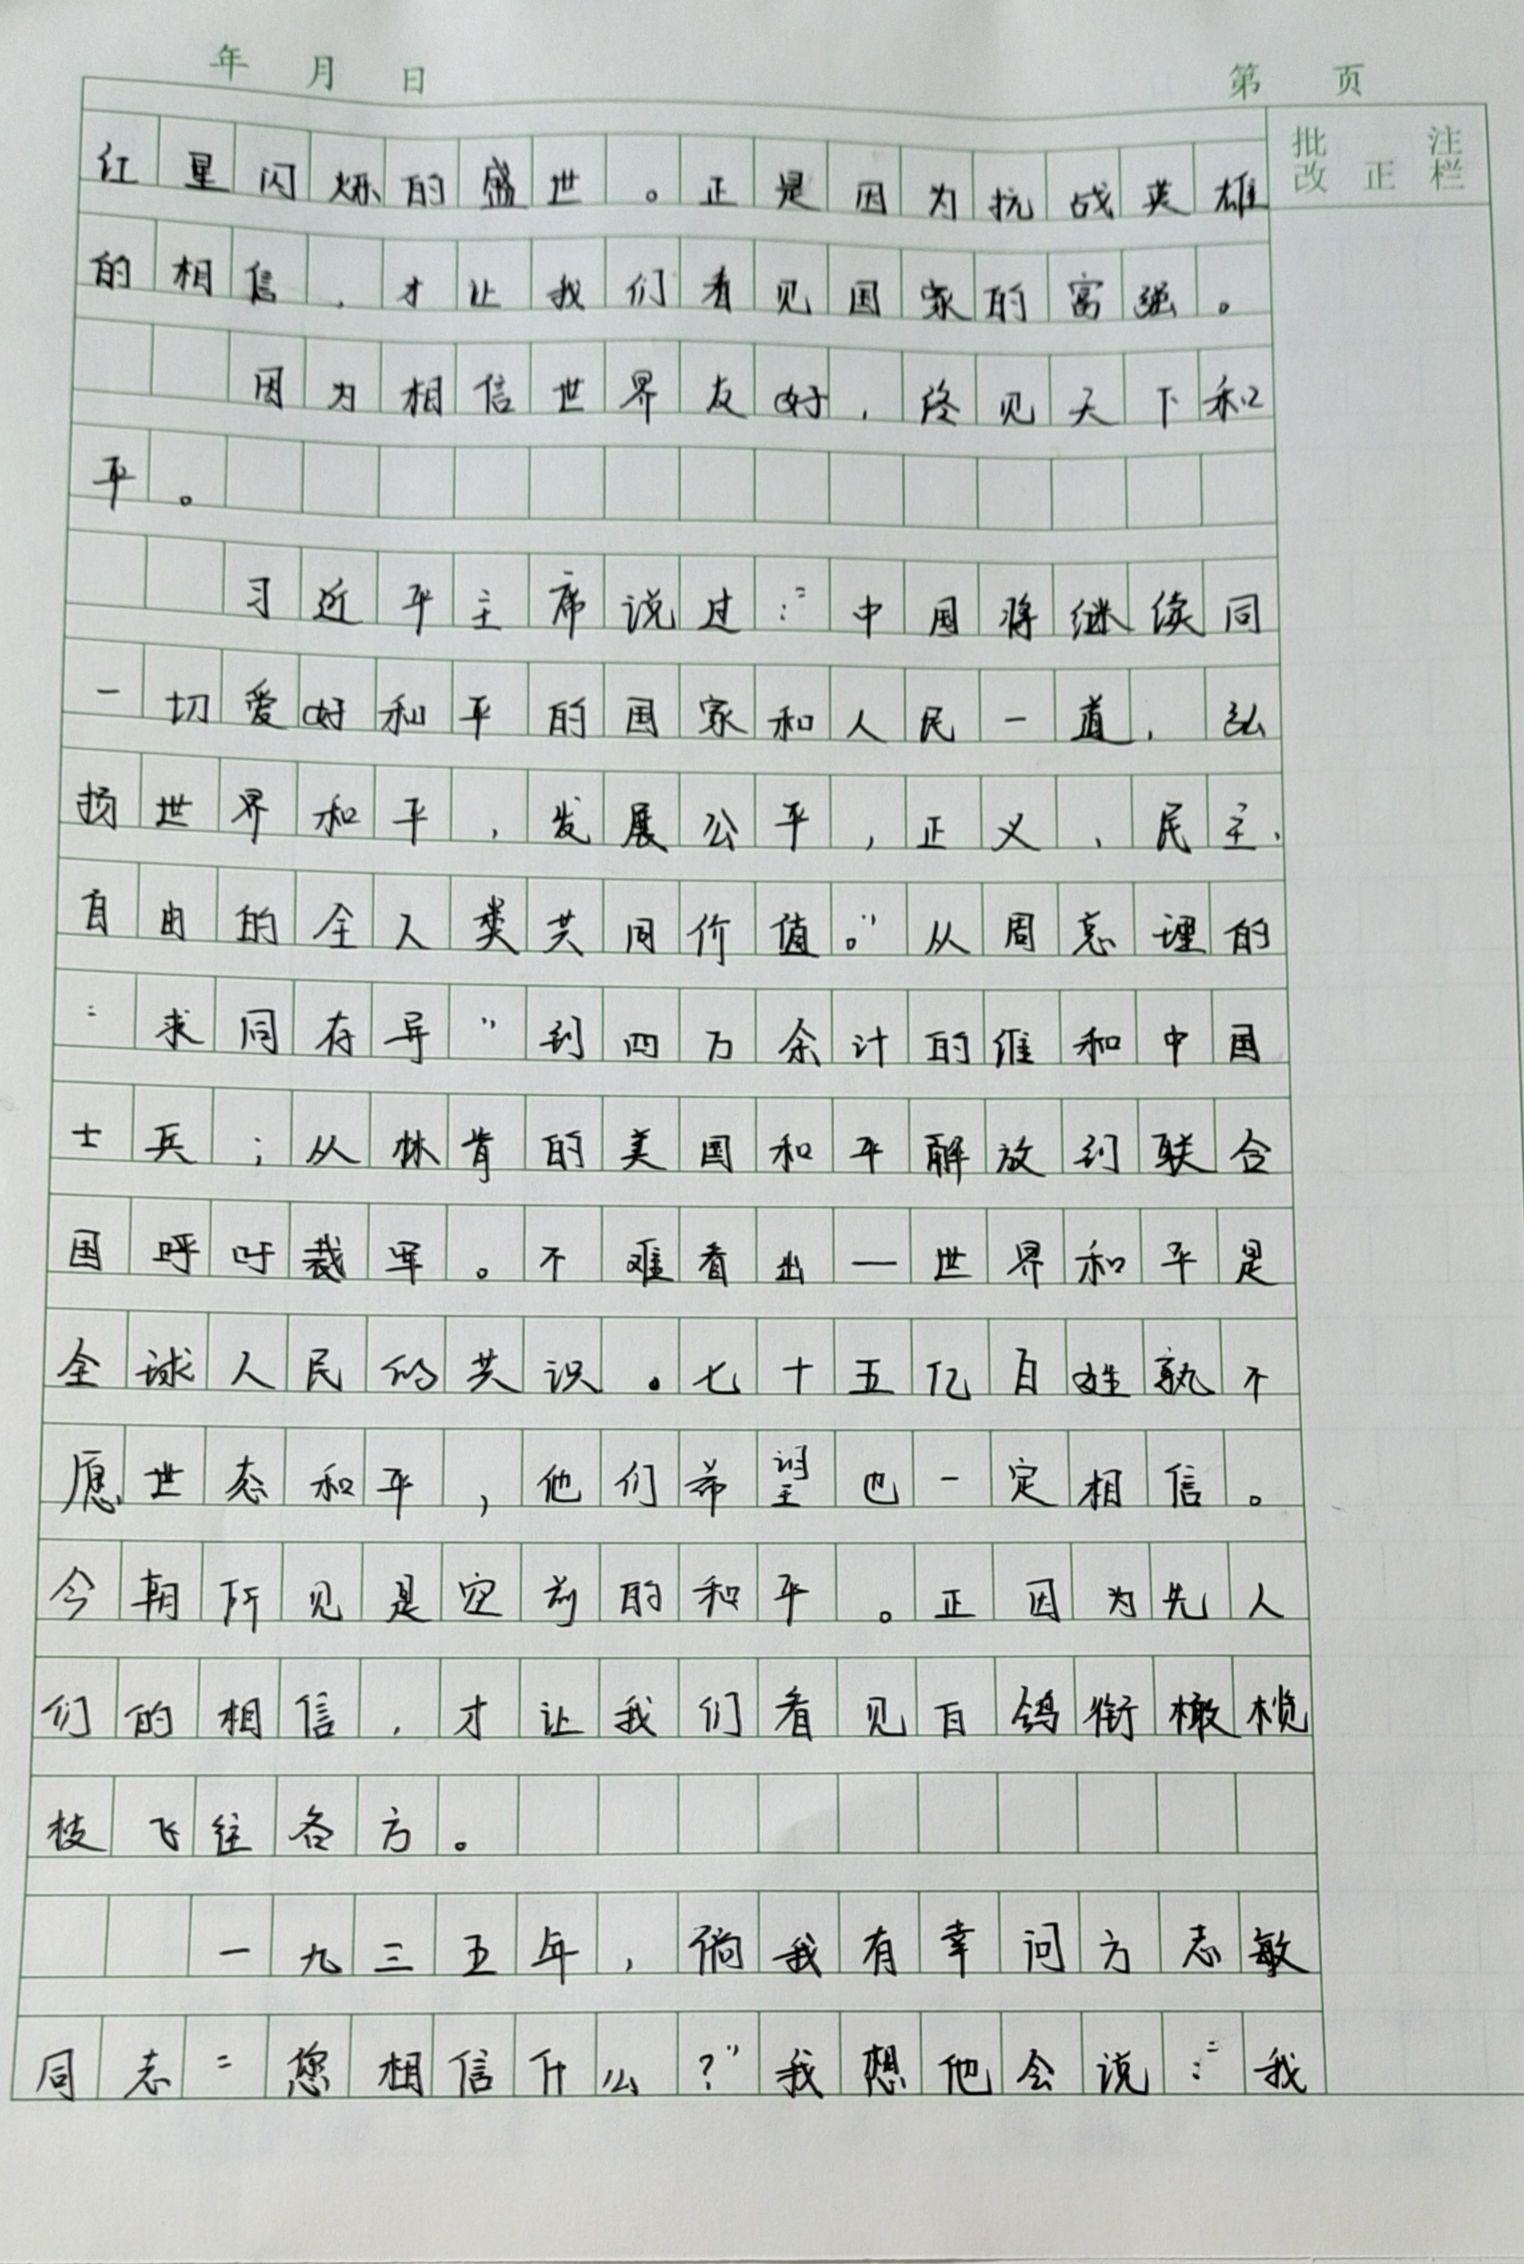 年 月 日
第 页
批 注
改 正 栏
红星闪烁的盛世。正是因为抗战英雄
的相信,才让我们看见国家的富强。
因为相信世界友好,终见天下和
平。
习近平主席说过:“中国将继续同
一切爱好和平的国家和人民一道,弘
扬世界和平,发展公平,正义、民主、
自由的全人类共同价值。”从周总理的
“求同存异”到四万余计的维和中国
士兵;从林肯的美国和平解放到联合
国呼吁裁军。不难看出—世界和平是
全球人民的共识。七十五亿百姓孰不
愿世态和平,他们希望也一定相信。
今朝所见是空前的和平。正因为先人
们的相信,才让我们看见白鸽衔橄榄
枝飞往各方。
一九三五年,倘我有幸问方志敏
同志“您相信什么?”我想他会说:“我